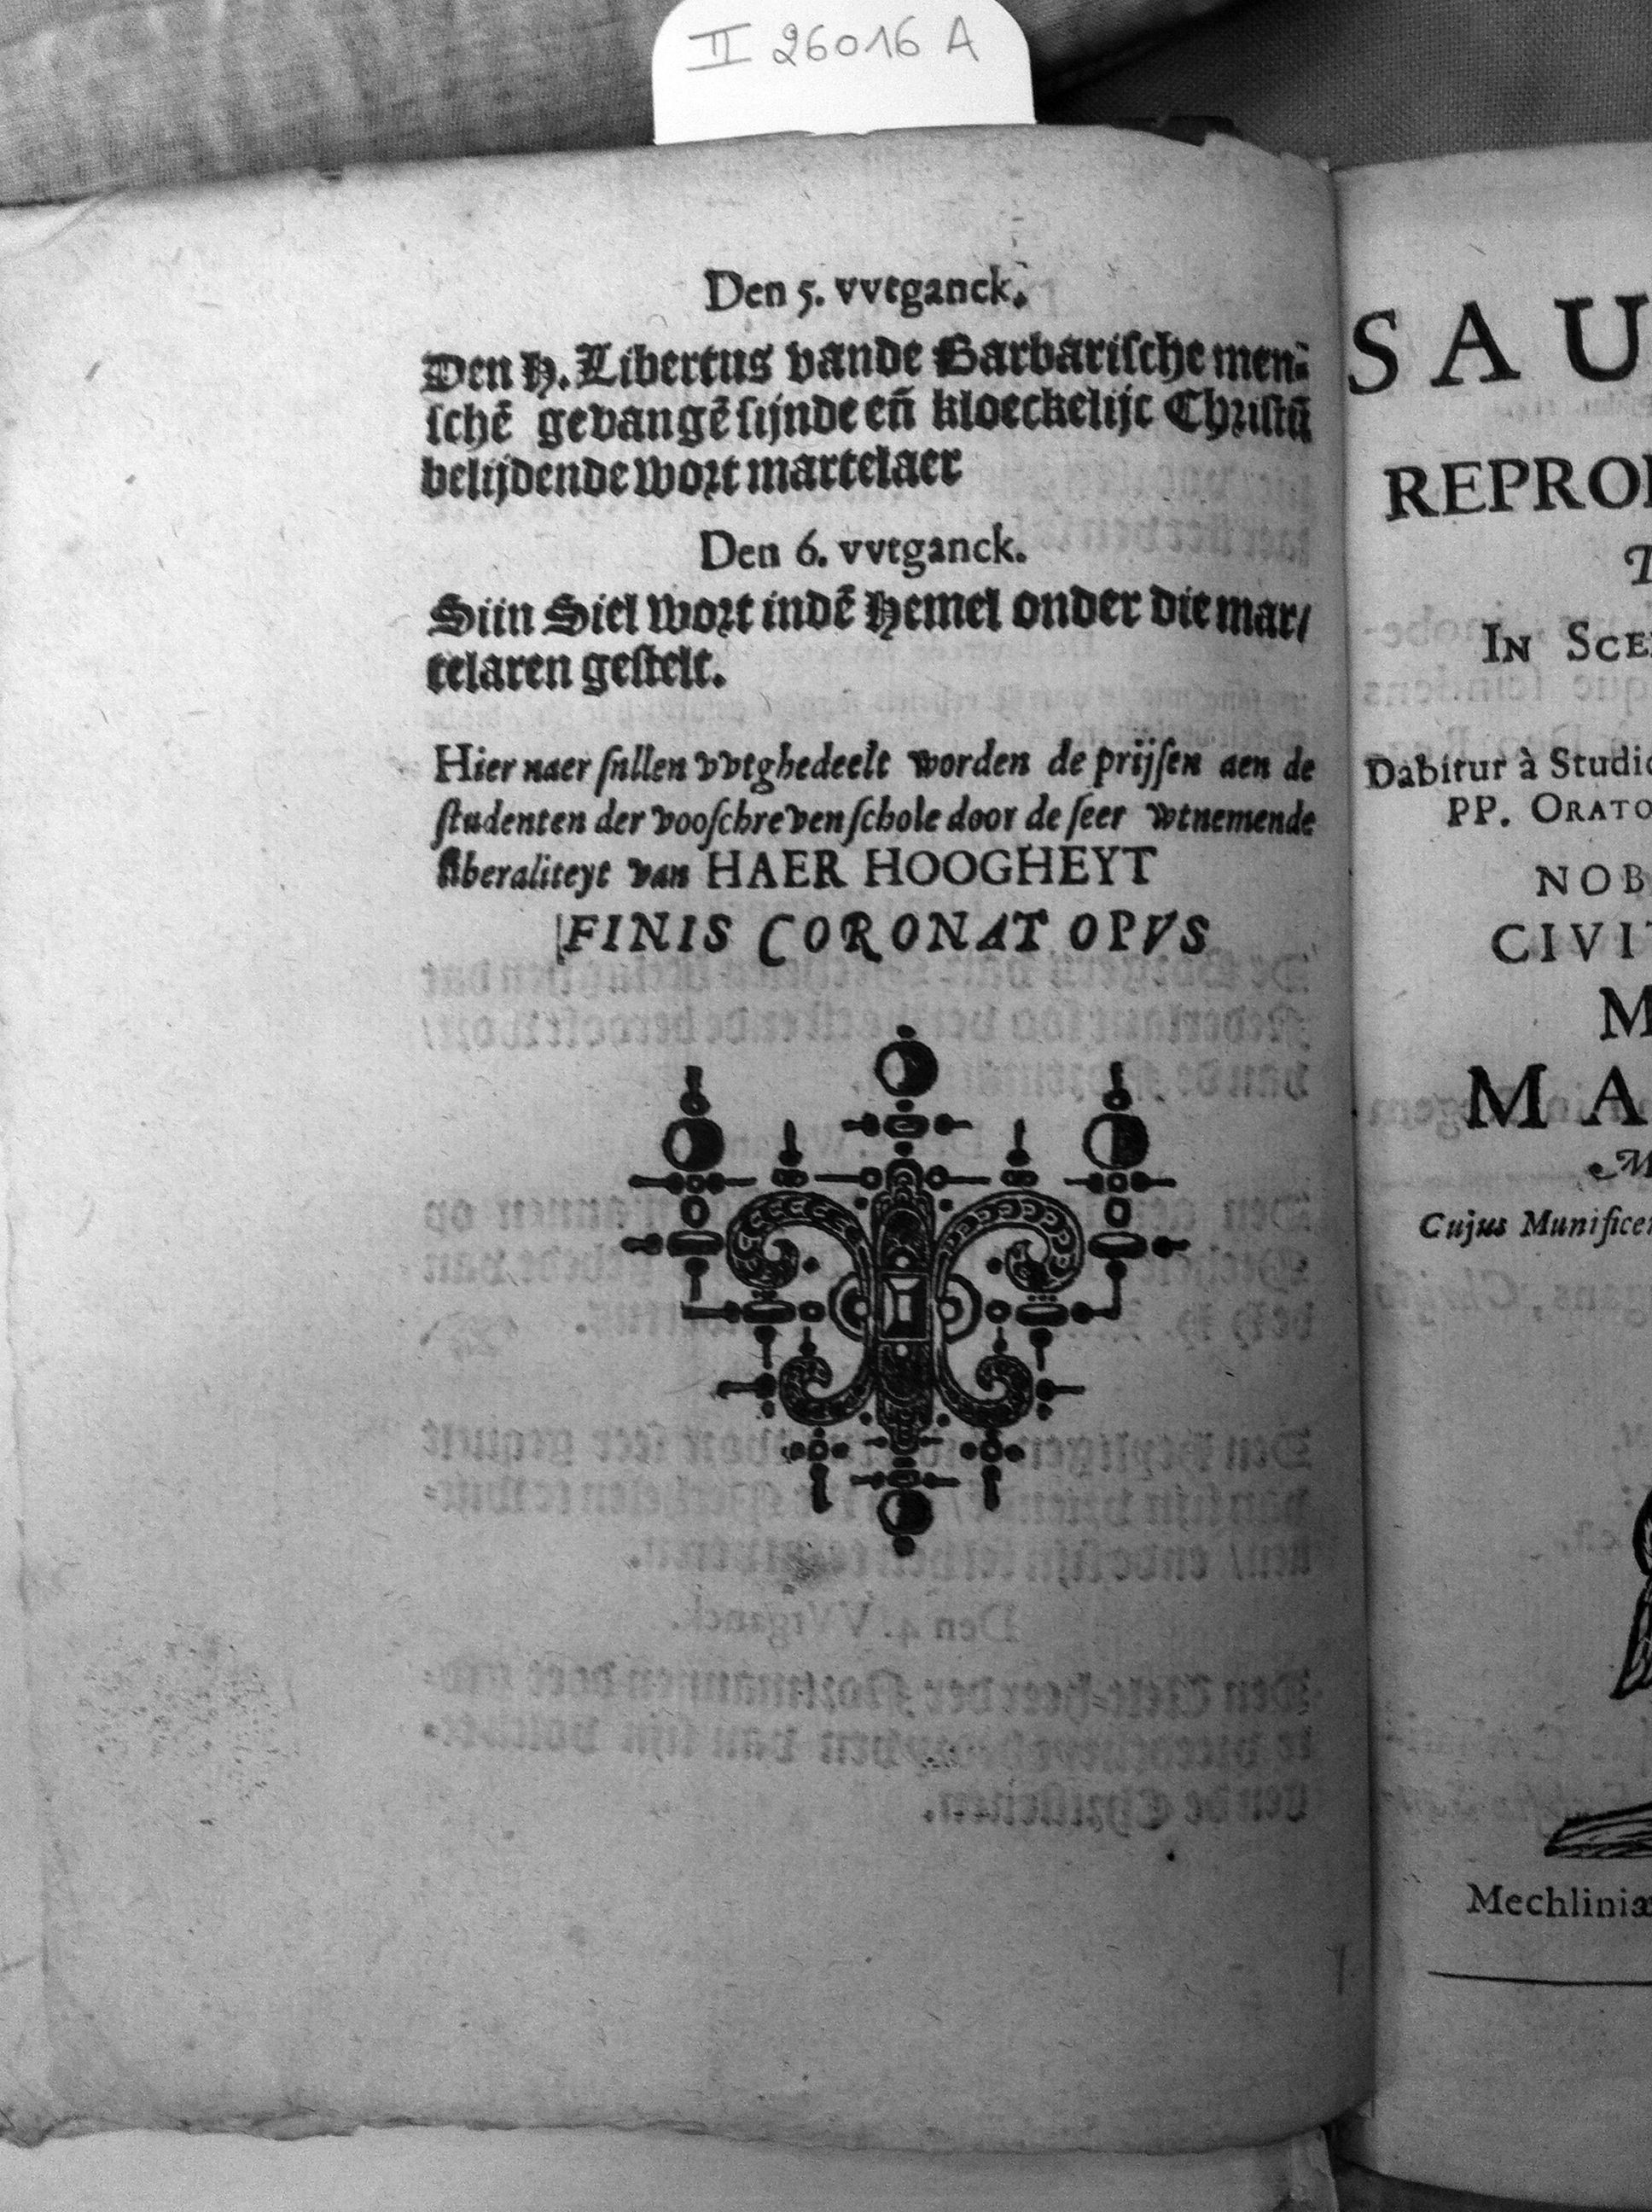 II 26016 A
Den 5. vvtganck.
Den H. Libertus vande Barbarische men⸗
schē gevangē sijnde en̄ kloeckelijc Christū
belijdende wort martelaer
Den 6. vvtganck.
Siin Siel wort indē Hemel onder die mar/
telaren gestelt.
Hier naer sullen vvtghedeelt worden de prijsen aen de
studenten der vooschreven schole door de seer wtnemende
liberaliteyt van HAER HOOGHEYT
FINIS CORONAT OPVS
SAU
REPRO
IN SCE
Dabitur à Studio
PP. ORATO
NOB
CIVIT
M
MA
M
Cujus Munificen
Mechliniæ